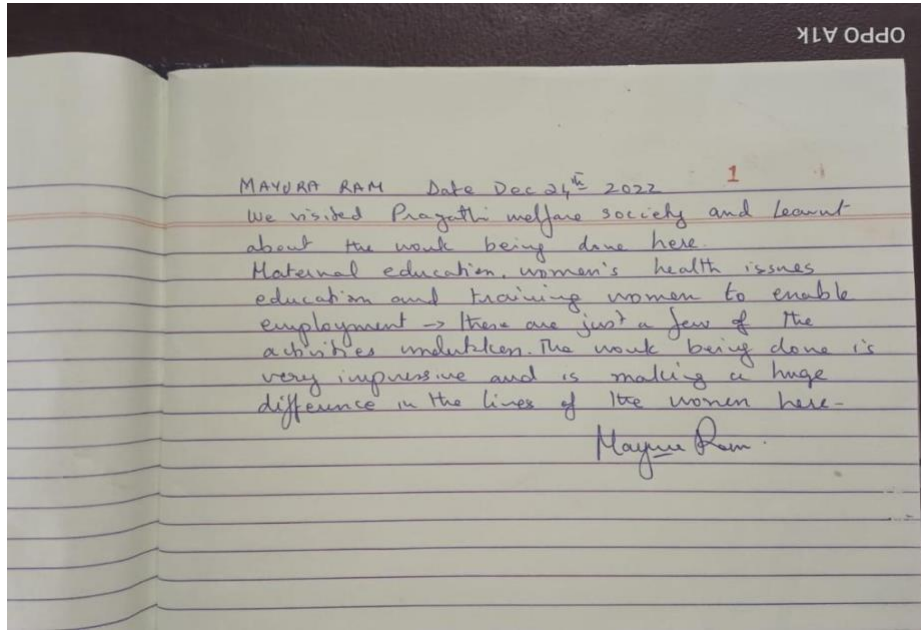 OPPO A1k
1
MAYURA RAM Date Dec 24th 2022
We visited Pragathi welfare society and learnt
about the work being done here.
Maternal education, women's health issues
education and training women to enable
employment → these are just a few of the
activities undertaken. The work being done is
very impressive and is making a huge
difference in the lives of the women here-
Mayura Ram.